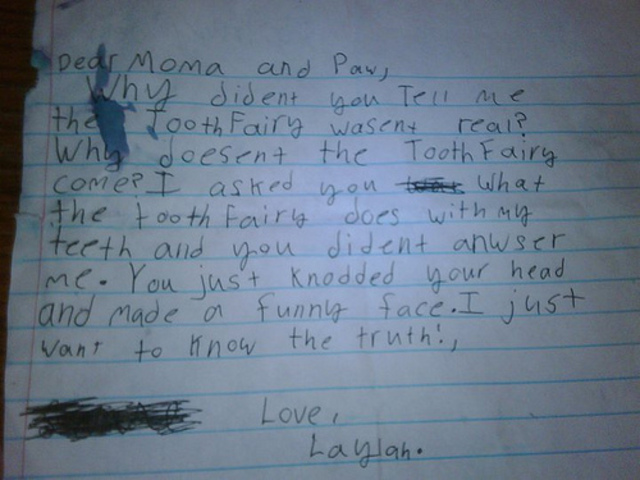 Dear Moma and Paw,
Why dident you Tell me
the ToothFairy wasent real?
Why doesent the ToothFairy
come? I asked you What
the toothFairy does with my
teeth and you dident anwser
me. You just Knodded your head
and made a funny face. I just
want to Know the truth!,
Love,
Laylah.